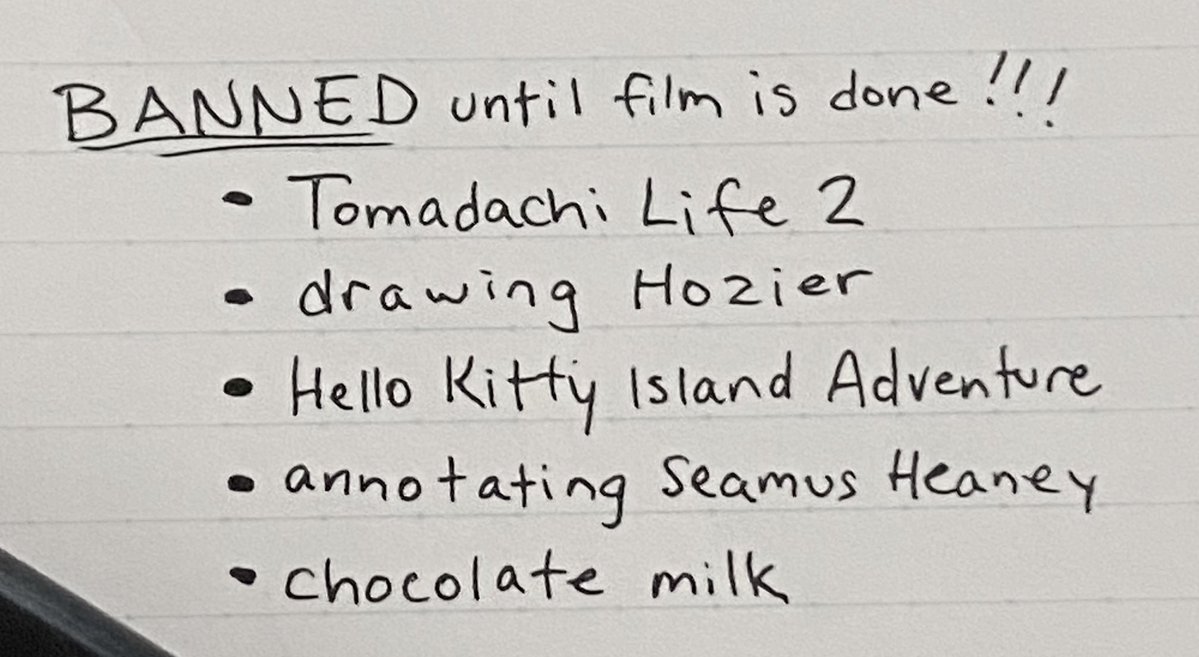 BANNED until film is done!!!
• Tomadachi Life 2
• drawing Hozier
• Hello Kitty Island Adventure
• annotating Seamus Heaney
• chocolate milk